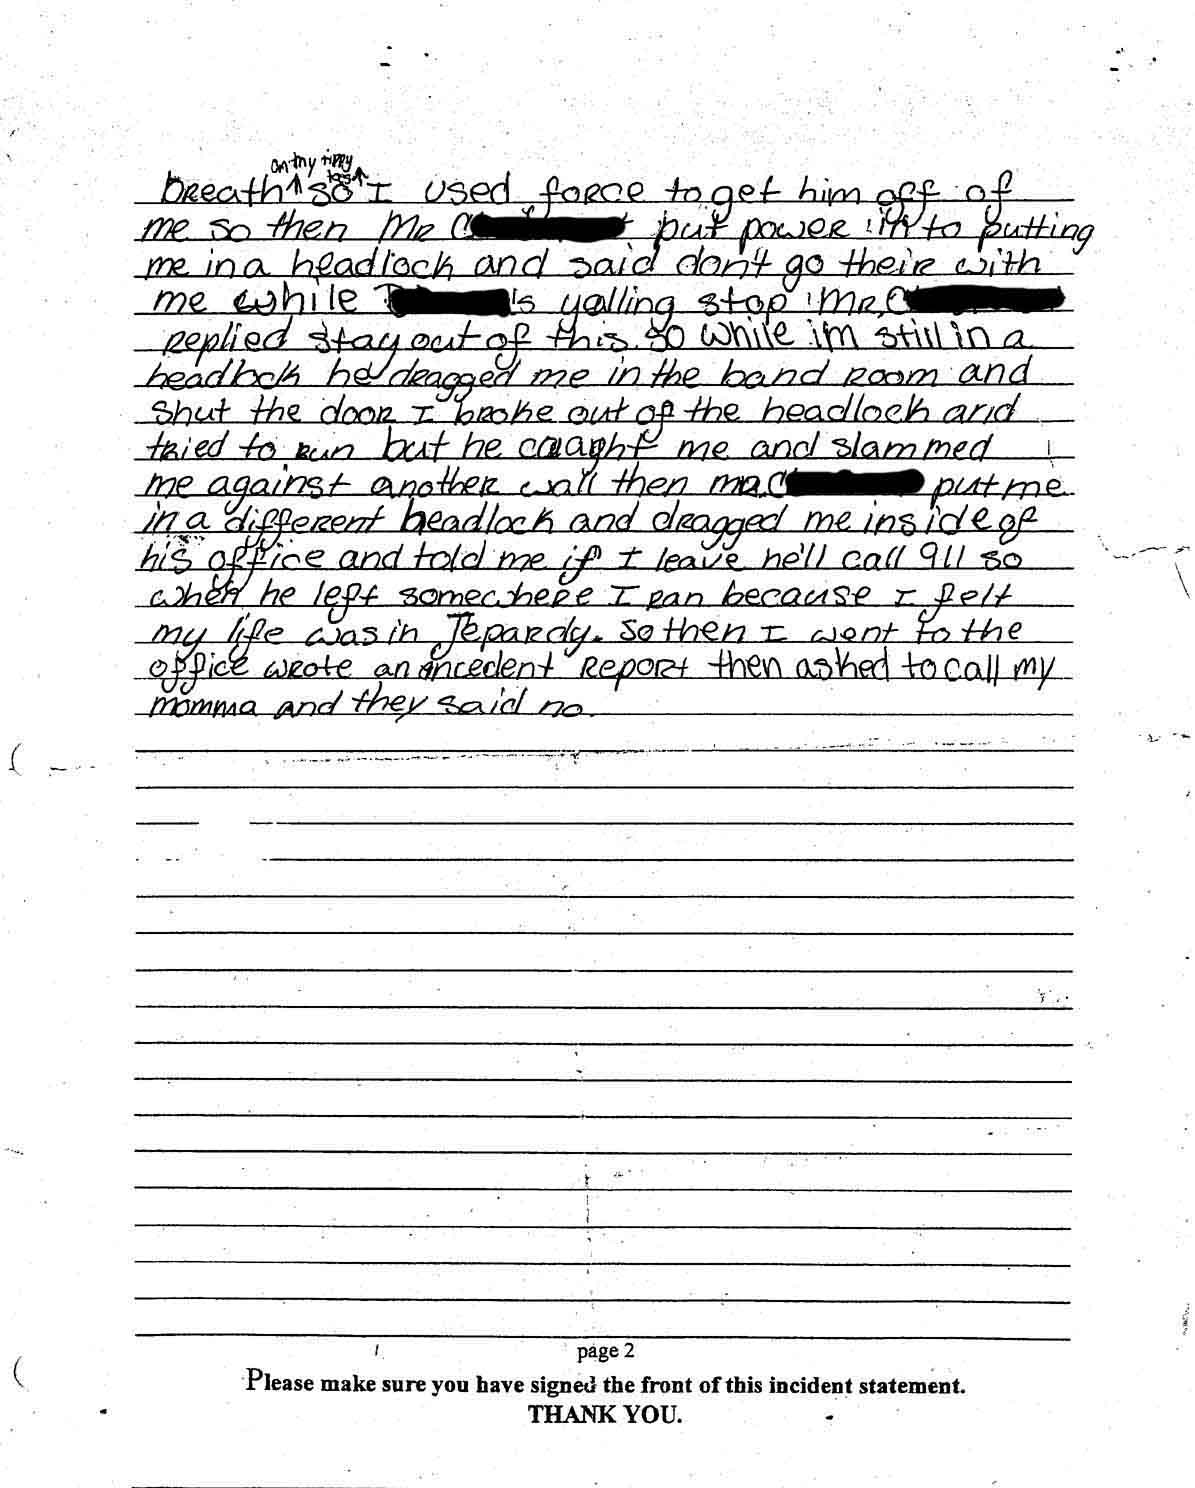 on my tippy
toes
breath so I used force to get him off of
me so then Mr C put power in to putting
me in a headlock and said don't go their with
me while T 's yelling stop Mr. C
replied stay out of this. so while i'm still in a
headlock he dragged me in the band room and
shut the door I broke out of the headlock and
tried to run but he caught me and slammed
me against another wall then mr. C put me
in a different headlock and dragged me inside of
his office and told me if I leave he'll call 911 so
when he left somewhere I ran because I felt
my life was in Jepardy. So then I went to the
office wrote an incedent report then asked to call my
momma and they said no.
page 2
Please make sure you have signed the front of this incident statement.
THANK YOU.